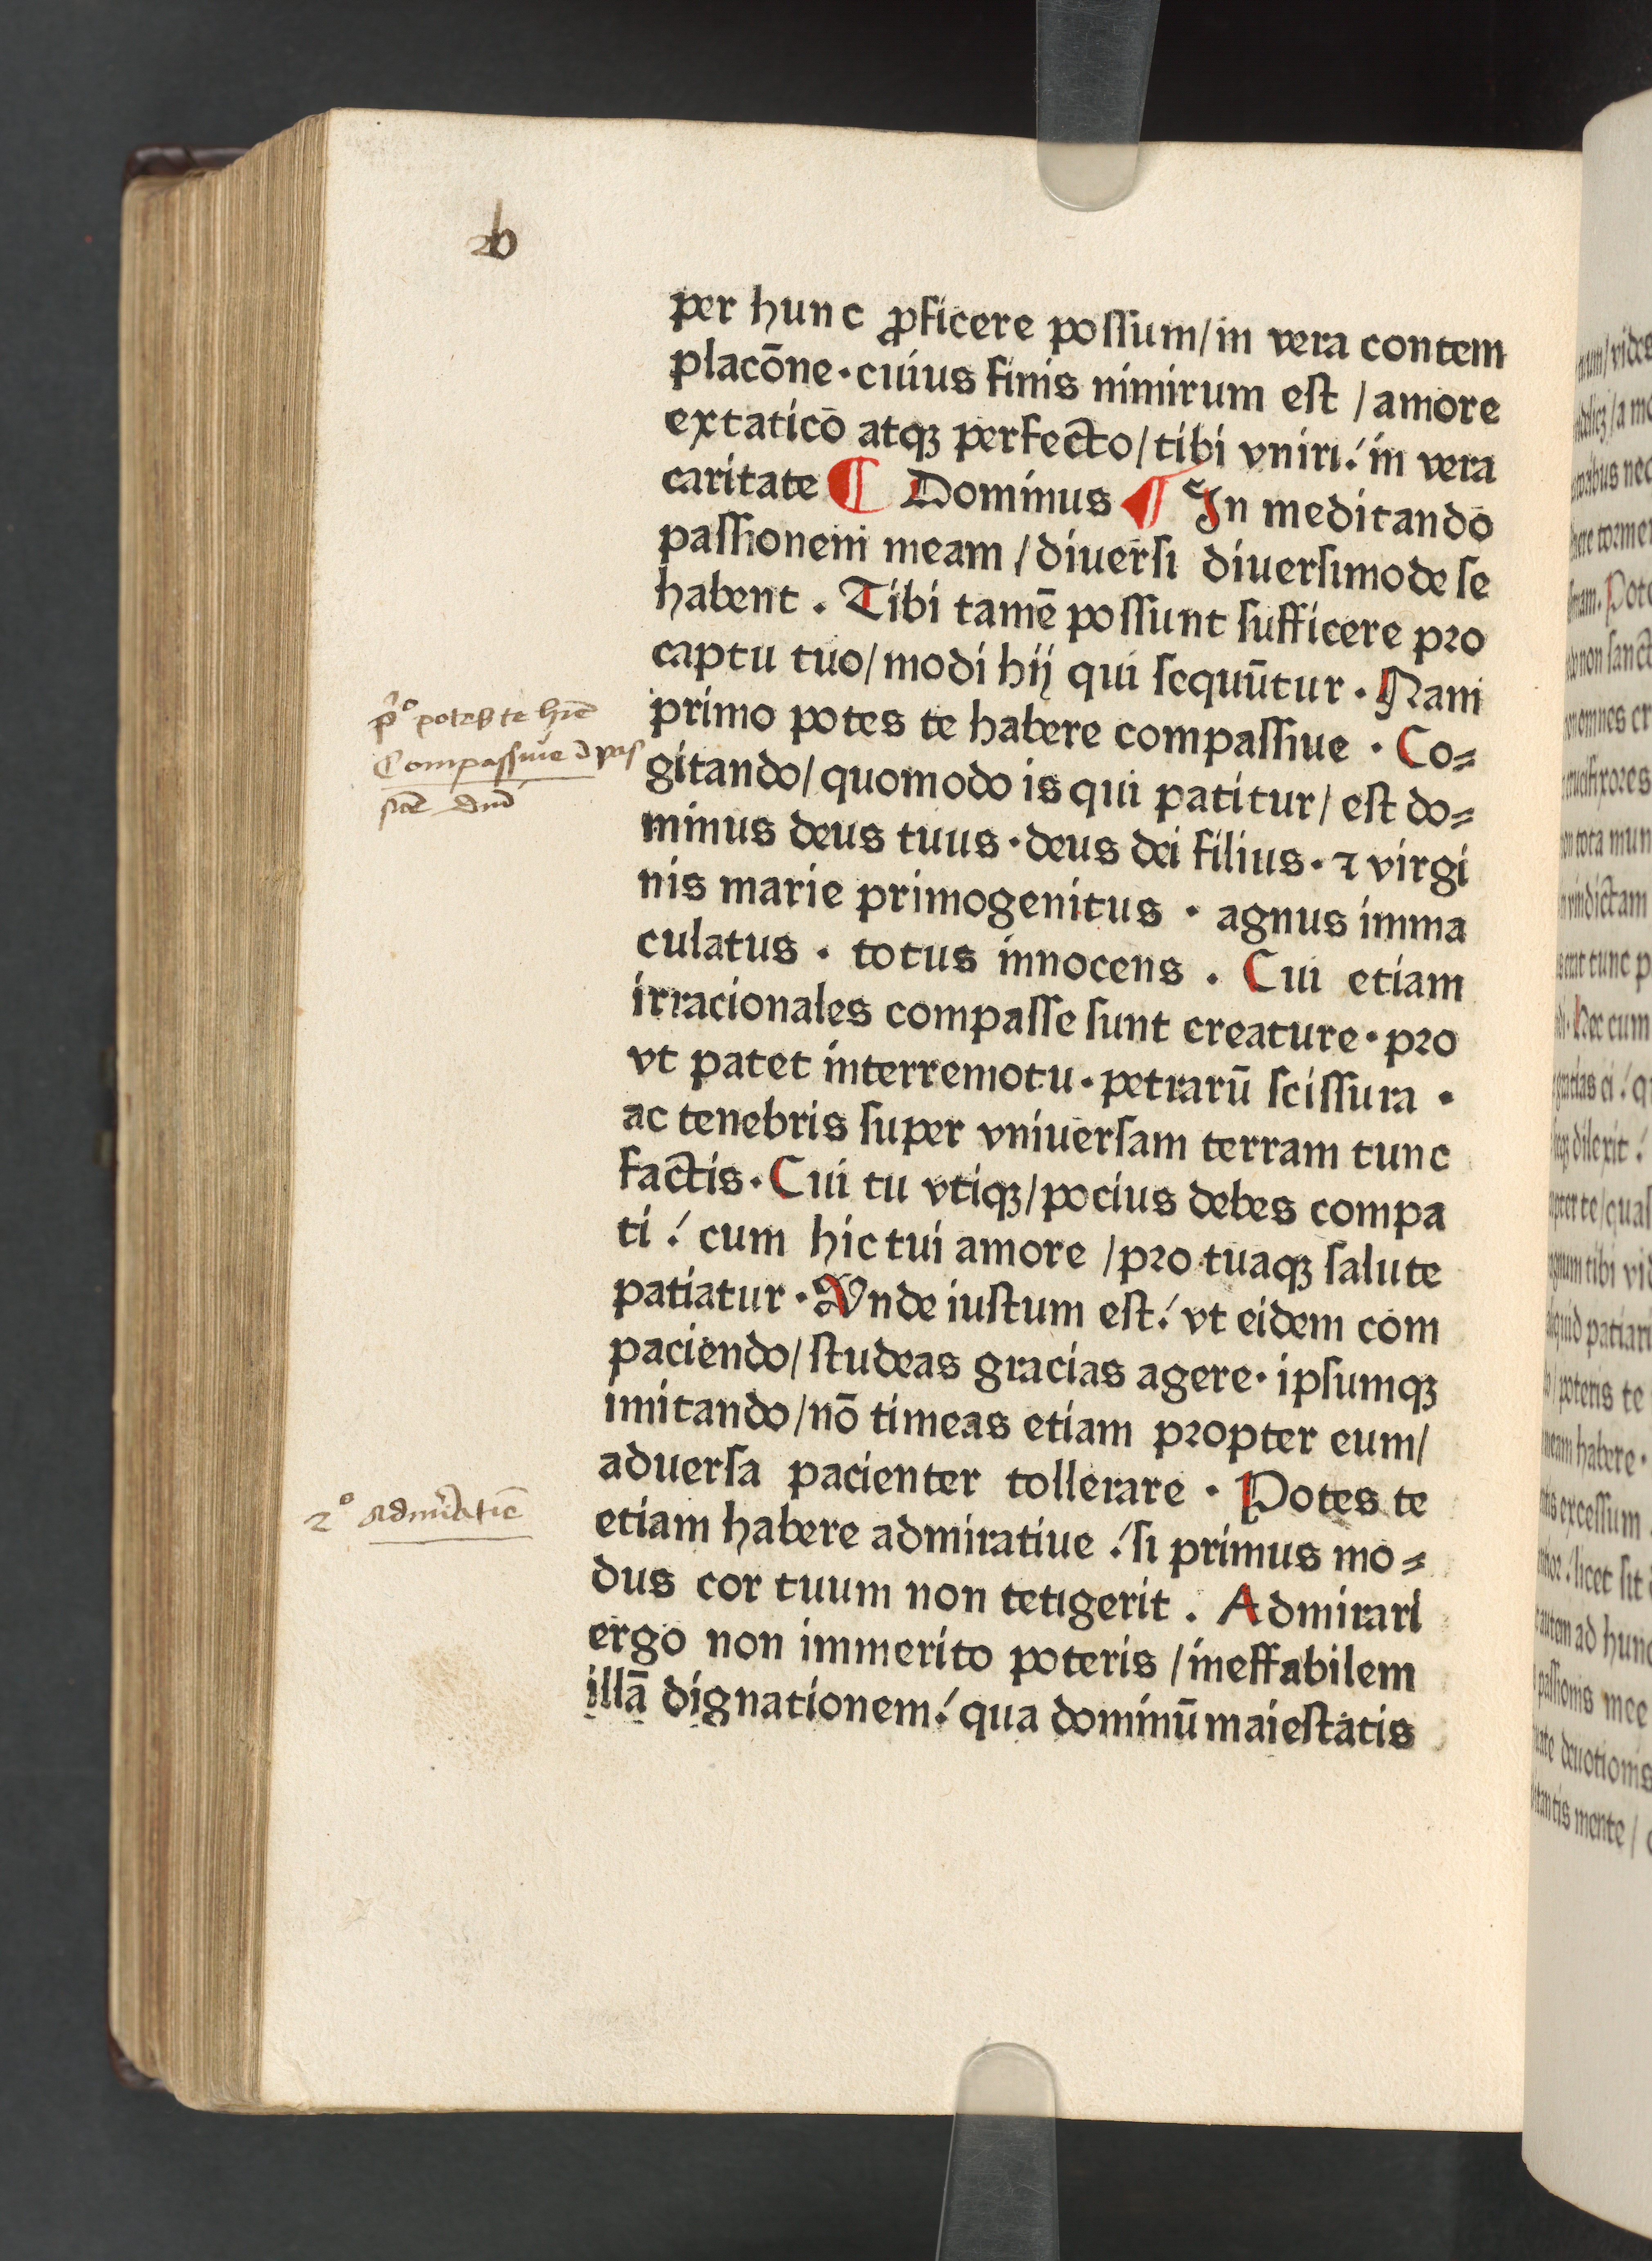 per hunc ꝓficere possum/in vera contem
placōne·cuius finis nimirum est /amore
extatico atqꝫ perfecto/tibi vniri: in vera
caritate ¶ Dominus ¶ In meditando
passionem meam /diuersi diuersimode se
habent . Tibi tamē possunt sufficere pro
captu tuo/modi hij qui sequūtur . Nam
primo potes te habere compassiue · Co=
gitando/quomodo is qui patitur/ est do=
minus deus tuus·deus dei filius·⁊ virgi
nis marie primogenitus · agnus imma
culatus . totus innocens . Cui etiam
irracionales compasse sunt creature·pro
vt patet interremotu·petrarū scissura ·
ac tenebris super vniuersam terram tunc
factis·Cui tu vtiqꝫ/pocius debes compa
ti : cum hic tui amore /pro tuaqꝫ salute
patiatur·Vnde iustum est: vt eidem com
paciendo/studeas gracias agere·ipsumqꝫ
imitando/nō timeas etiam propter eum/
aduersa pacienter tollerare · Potes te
etiam habere admiratiue :si primus mo=
dus cor tuum non tetigerit . Admirari
ergo non immerito poteris /ineffabilem
illā dignationem: qua dominū maiestatis
p̄º potes te
Compassiue
2º